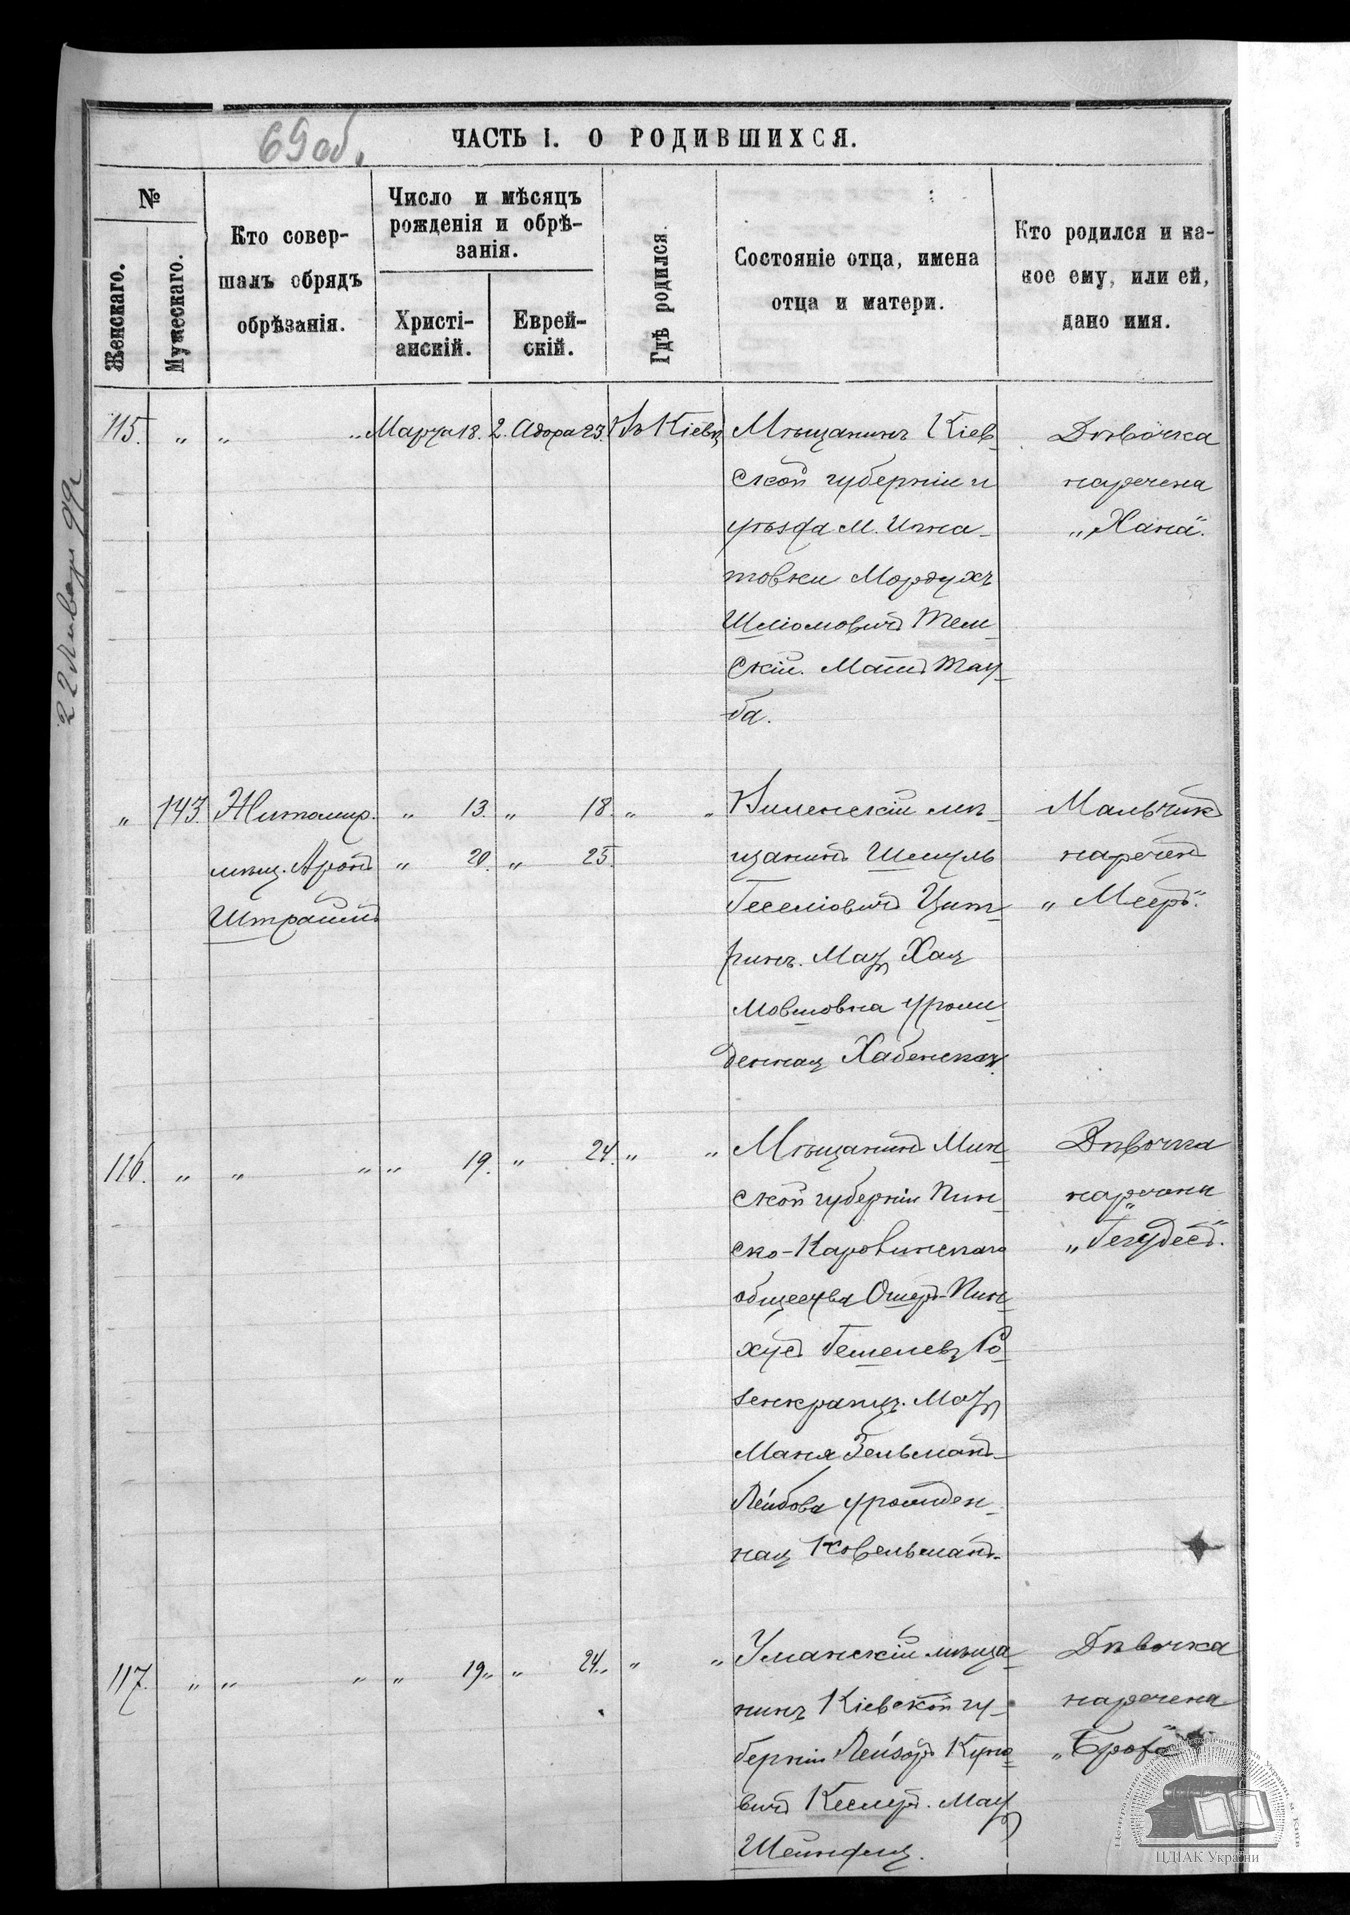 69 об.
ЧАСТЬ I. О РОДИВШИХСЯ.
№
Женскаго.
Мужескаго.
Кто совер-
шалъ обрядъ
обрѣзанія.
Число и мѣсяцъ
рожденія и обрѣ-
занія.
Христі-
анскій.
Еврей-
скій.
Гдѣ родился.
Состояніе отца, имена
отца и матери.
Кто родился и ка-
кое ему, или ей,
дано имя.
115. „ „ „ Марта 18. 2. Адора 23. Въ Кіевѣ
Мѣщанинъ Кіев-
ской губерніи и
уѣзда М. Игна-
товки Мордухъ
Шліомовичъ Тем-
скій. Мать Тау-
ба.
Дѣвочка
наречена
„Хана".
„ 143. Житомир. „ 13. „ 18. „ „
мѣщ. Аронъ „ 20. „ 25.
Виленскій мѣ-
щанинъ Шмуль
Геселіовичъ Цит-
ринъ. Мать Хая
Мовшовна урож-
денная Хабенская.
Мальчикъ
нареченъ
„Мееръ".
116. „ „ „ „ 19. „ 24. „ „
Мѣщанинъ Мин-
ской губерніи Пин-
ско-Каролинскаго
общества Ошеръ-Пин-
хусъ Розенкранцъ. Мать
Маня
Лейбова урожден-
ная
Дѣвочка
наречена
117. „ „ „ „ 19. „ 24. „ „
Уманскій мѣща-
нинъ Кіевской гу-
берніи Лейзоръ
Кеслеръ. Мать
Дѣвочка
наречена
22 Января 99 г.
ЦДІАК України